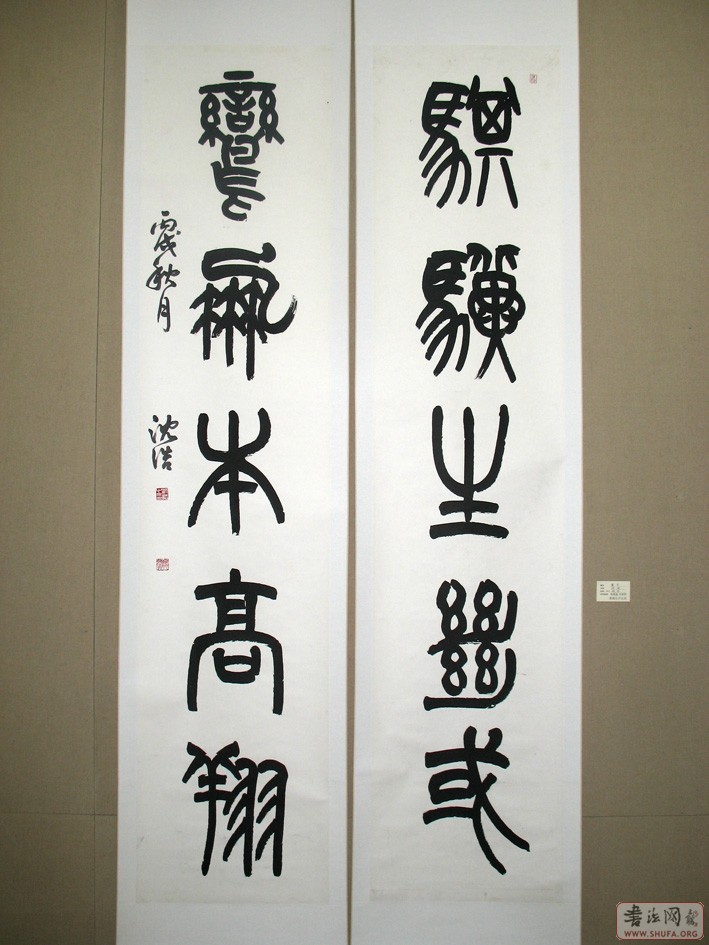 騏驥生絕或
鸞鳳本高翔
丙戌秋月
沈浩
书法网
WWW.SHUFA.ORG